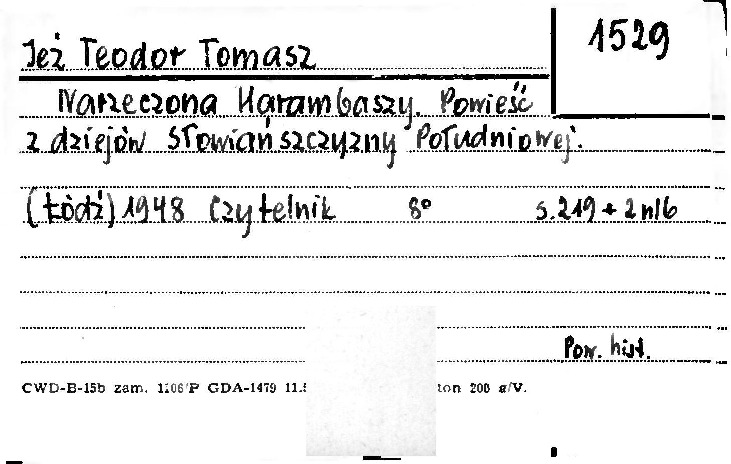 1529
Jeż Teodor Tomasz
Narzeczona Harambaszy. Powieść
z dziejów Słowiańszczyzny Południowej.
(Łódź) 1948 Czytelnik 8° s. 219 + 2 nlb
Pow. hist.
CWD-B-15b zam. 1106/P GDA-1479 11. ton 200 g/V.